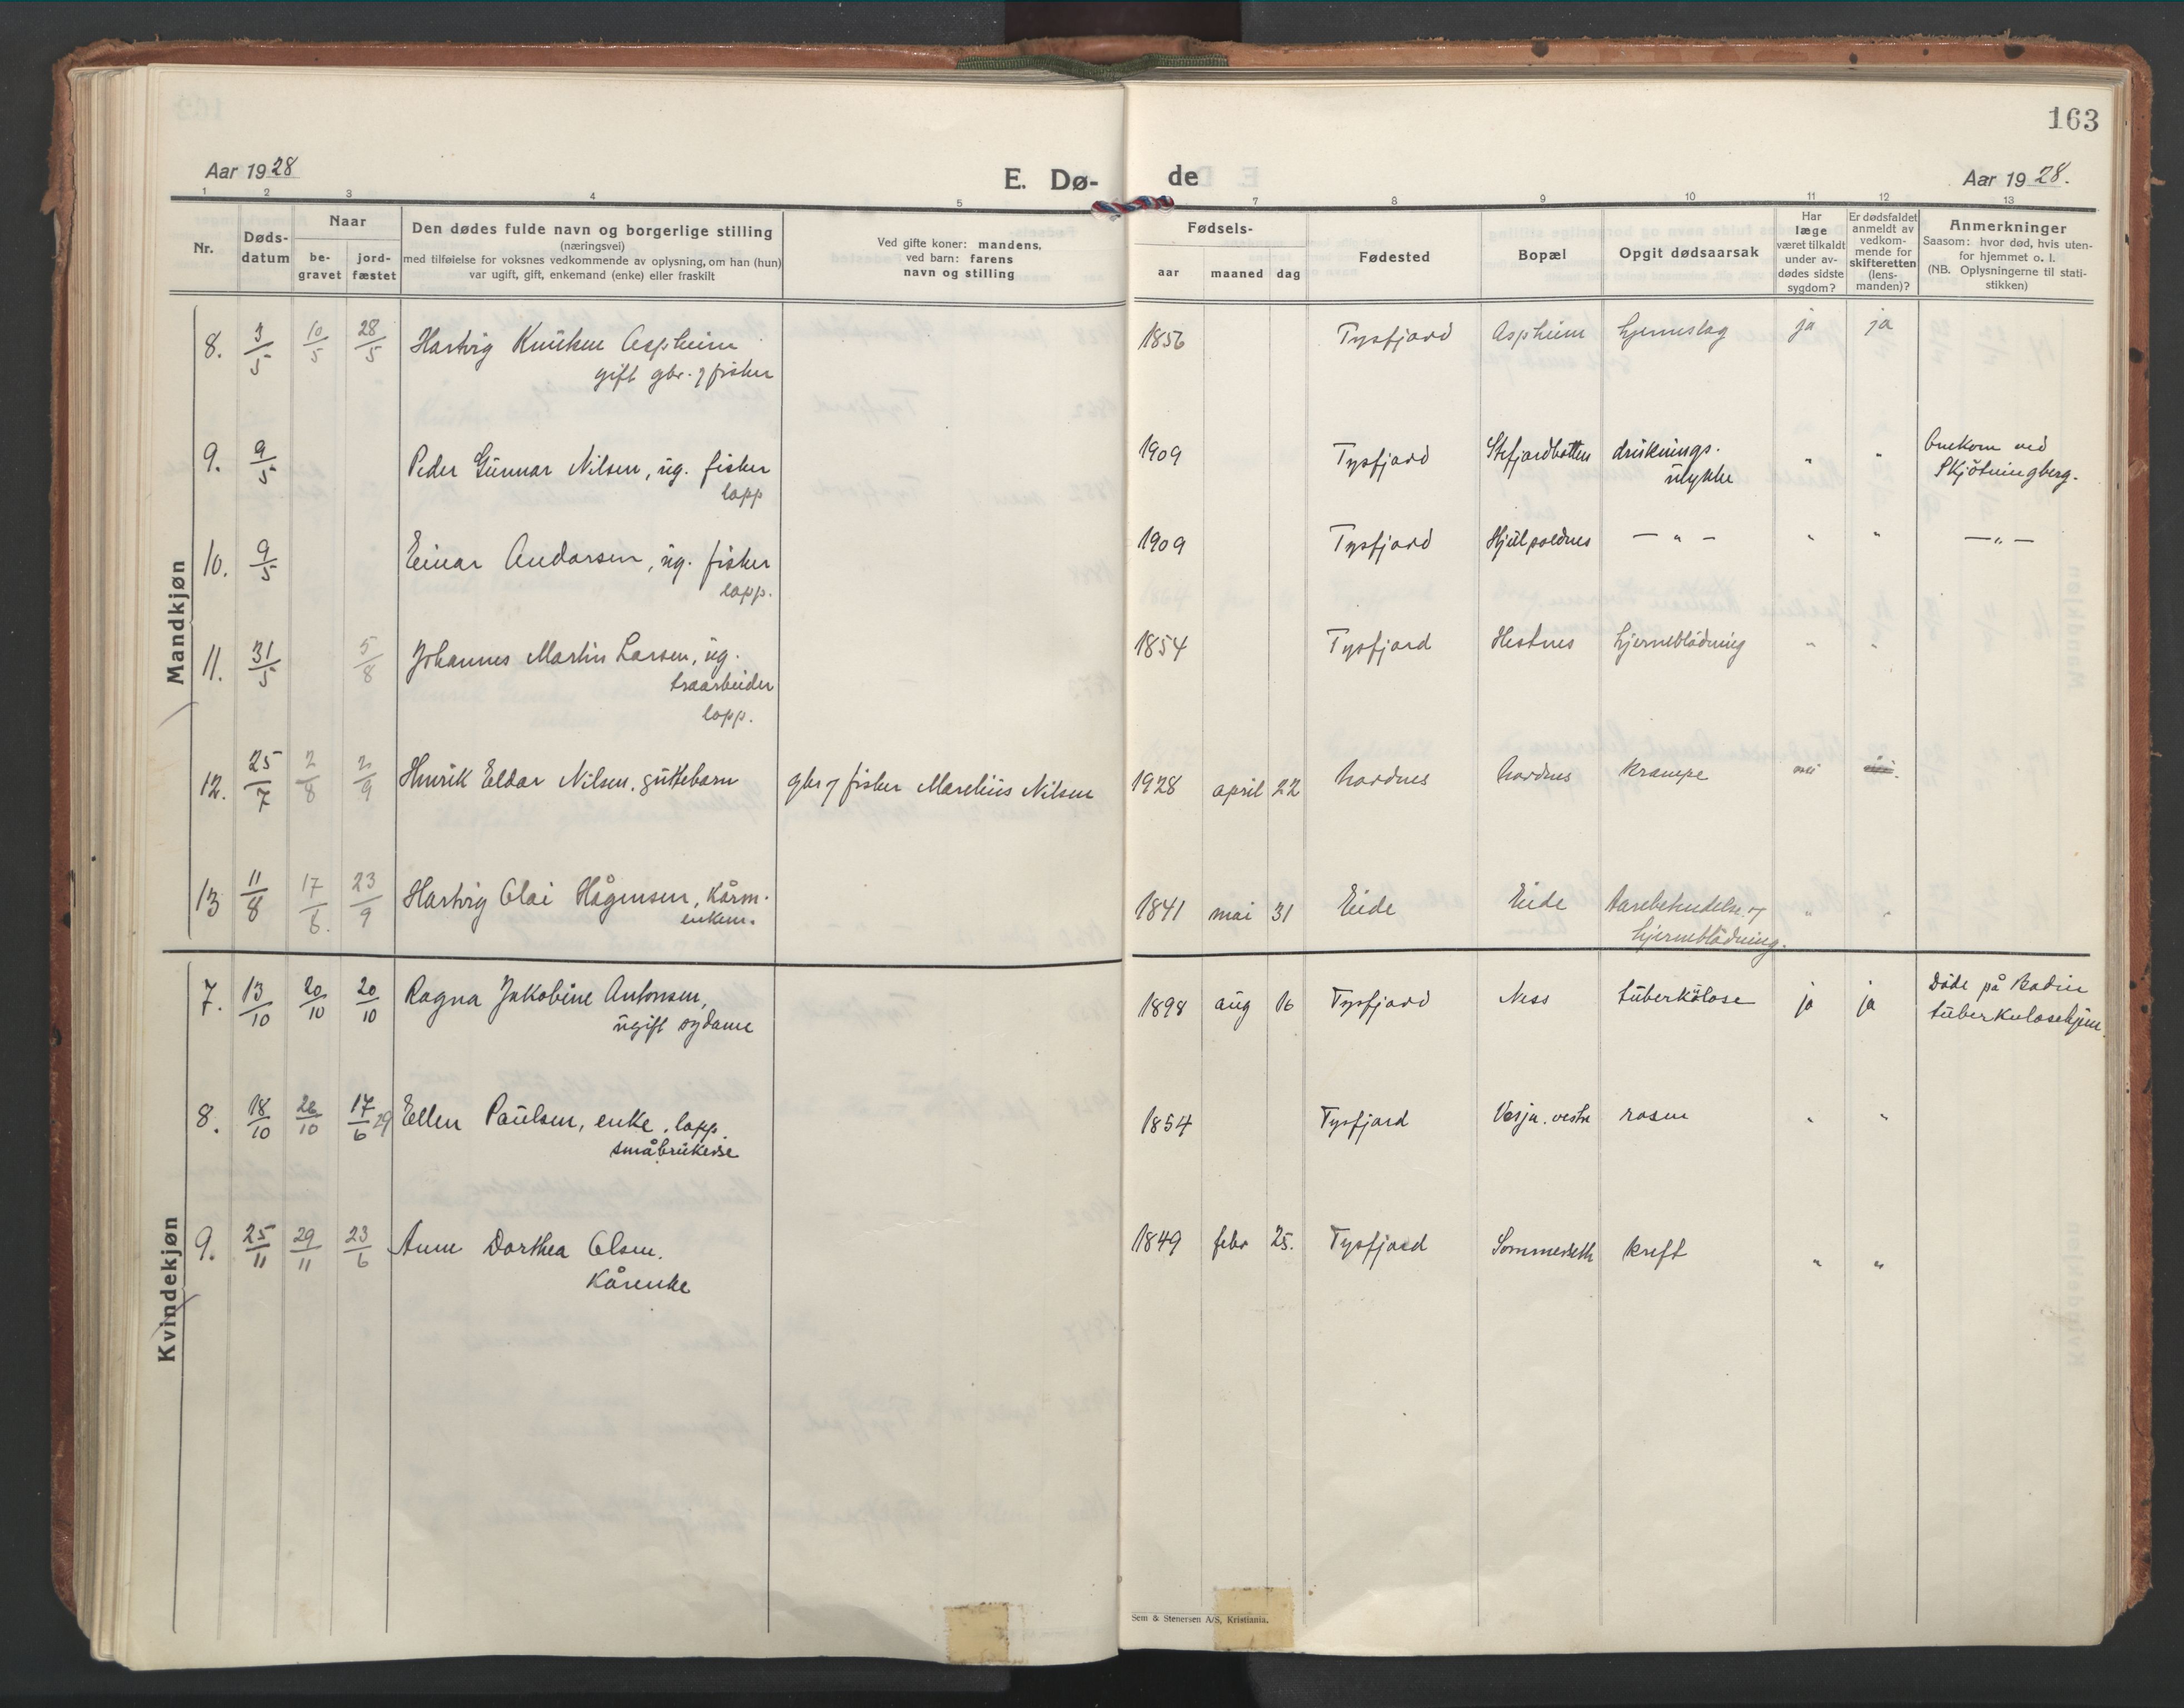 163
Aar 1928
E. Dø-
de
Aar 1928.
1 2 3 4 5 7 8 9 10 11 12 13
Nr.
Døds-
datum
Naar
be-
gravet
jord-
fæstet
Den dødes fulde navn og borgerlige stilling
(næringsvei)
med tilføielse for voksnes vedkommende av oplysning, om han (hun)
var ugift, gift, enkemand (enke) eller fraskilt
Ved gifte koner: mandens,
ved barn: farens
navn og stilling
Fødsels-
aar maaned dag
Fødested
Bopæl
Opgit dødsaarsak
Har
læge
været tilkaldt
under av-
dødes sidste
sygdom?
Er dødsfaldet
anmeldt av
vedkom-
mende for
skifteretten
(lens-
manden)?
Anmerkninger
Saasom: hvor død, hvis uten-
for hjemmet o. l.
(NB. Oplysningerne til stati-
stikken)
Mandkjøn
8. 3/5 10/5 28/5 Hartvig Knutsen Aspheim 1856 Tysfjord Aspheim hjerneslag ja ja
gift gbr. og fisker
9. 9/5 Peder Gunnar Nilsen, ug. fisker 1909 Tysfjord Stefjordbotten druknings- " " Omkom ved
lapp ulykke Skjötningberg.
10. 9/5 Einar Andersen, ug. fisker 1909 Tysfjord — " — " " — " —
lapp.
11. 31/5 5/8 Johannes Martin Larsen, ug. 1854 Tysfjord Hestnes hjerneblödning " "
traarbeider
lapp.
12. 25/7 2/8 2/9 Henrik Eldar Nilsen, guttebarn gbr og fisker Marelius Nilsen 1928 april 22 Hordnes Hordnes krampe nei nei.
13 11/8 17/8. 23/9 Hartvig Olai Hågensen, kårm. 1841 mai 31 Eide Eide og " "
enkem. hjerneblödning.
Kvindekjøn
7. 13/10 20/10 20/10 Ragna Jakobine Antonsen, 1898 aug 16 Tysfjord Ness tuberkulose ja ja Döde på Bodin
ugift sydame tuberkulosehjem.
8. 18/10 26/10 17/6 29 Ellen Paulsen, enke, lapp 1854 Tysfjord vestre rosen " "
småbrukerske
9. 25/11 29/11 23/6 Anne Dorthea Olsen. 1849 febr 25. Tysfjord Sommerseth kreft " "
Kårenke
Sem & Stenersen A/S, Kristiania.